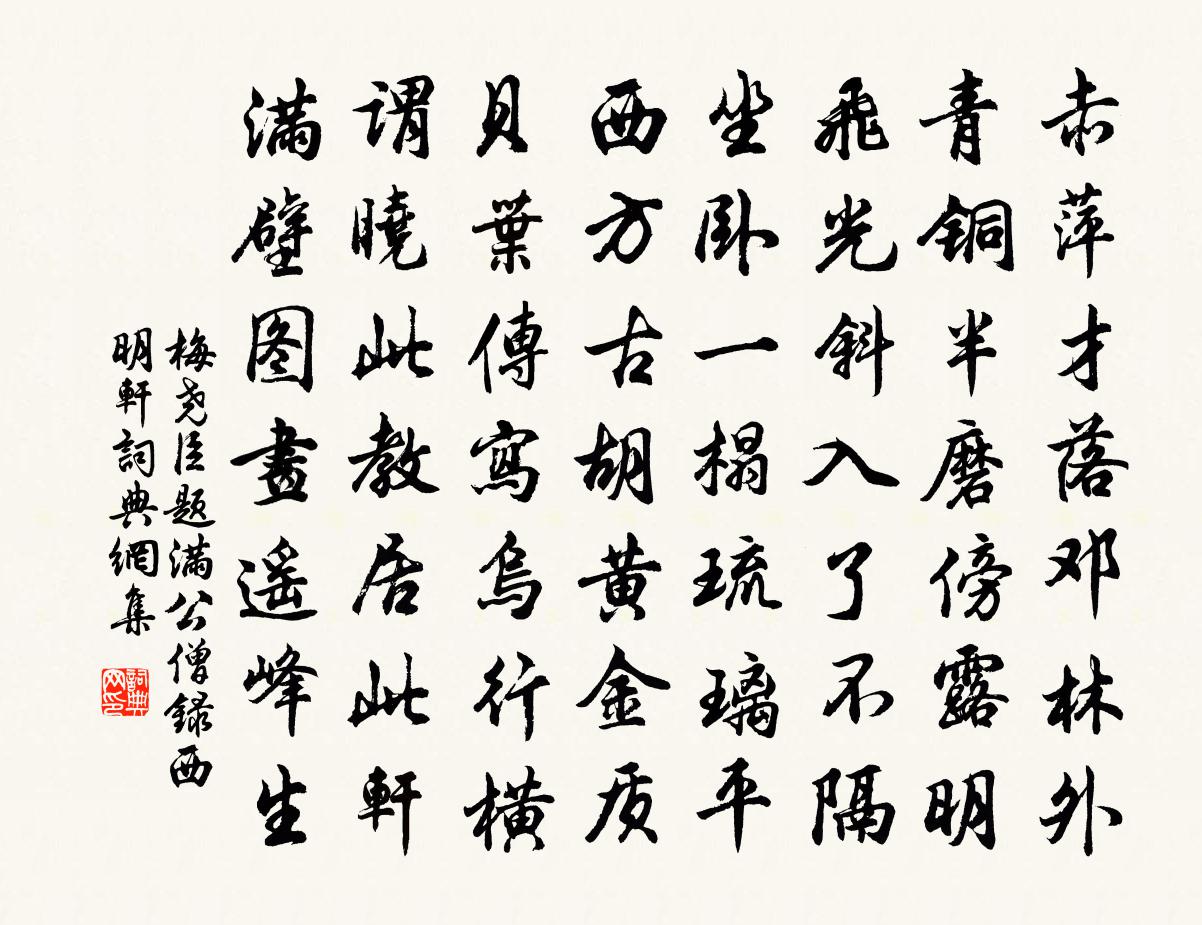 赤萍才落邓林外
青铜半磨傍露明
飛光斜入了不隔
坐卧一榻琉璃平
西方古胡黄金质
貝葉傳寫烏行横
謂曉此教居此軒
满壁图畫遥峰生
梅尧臣题满公僧録西
明軒詞典網集
詞典网印